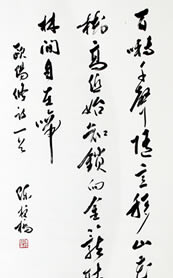 百囀千聲隨意移山花
樹高低始知鎖向金籠聽
林間自在啼
歐陽修詩一首